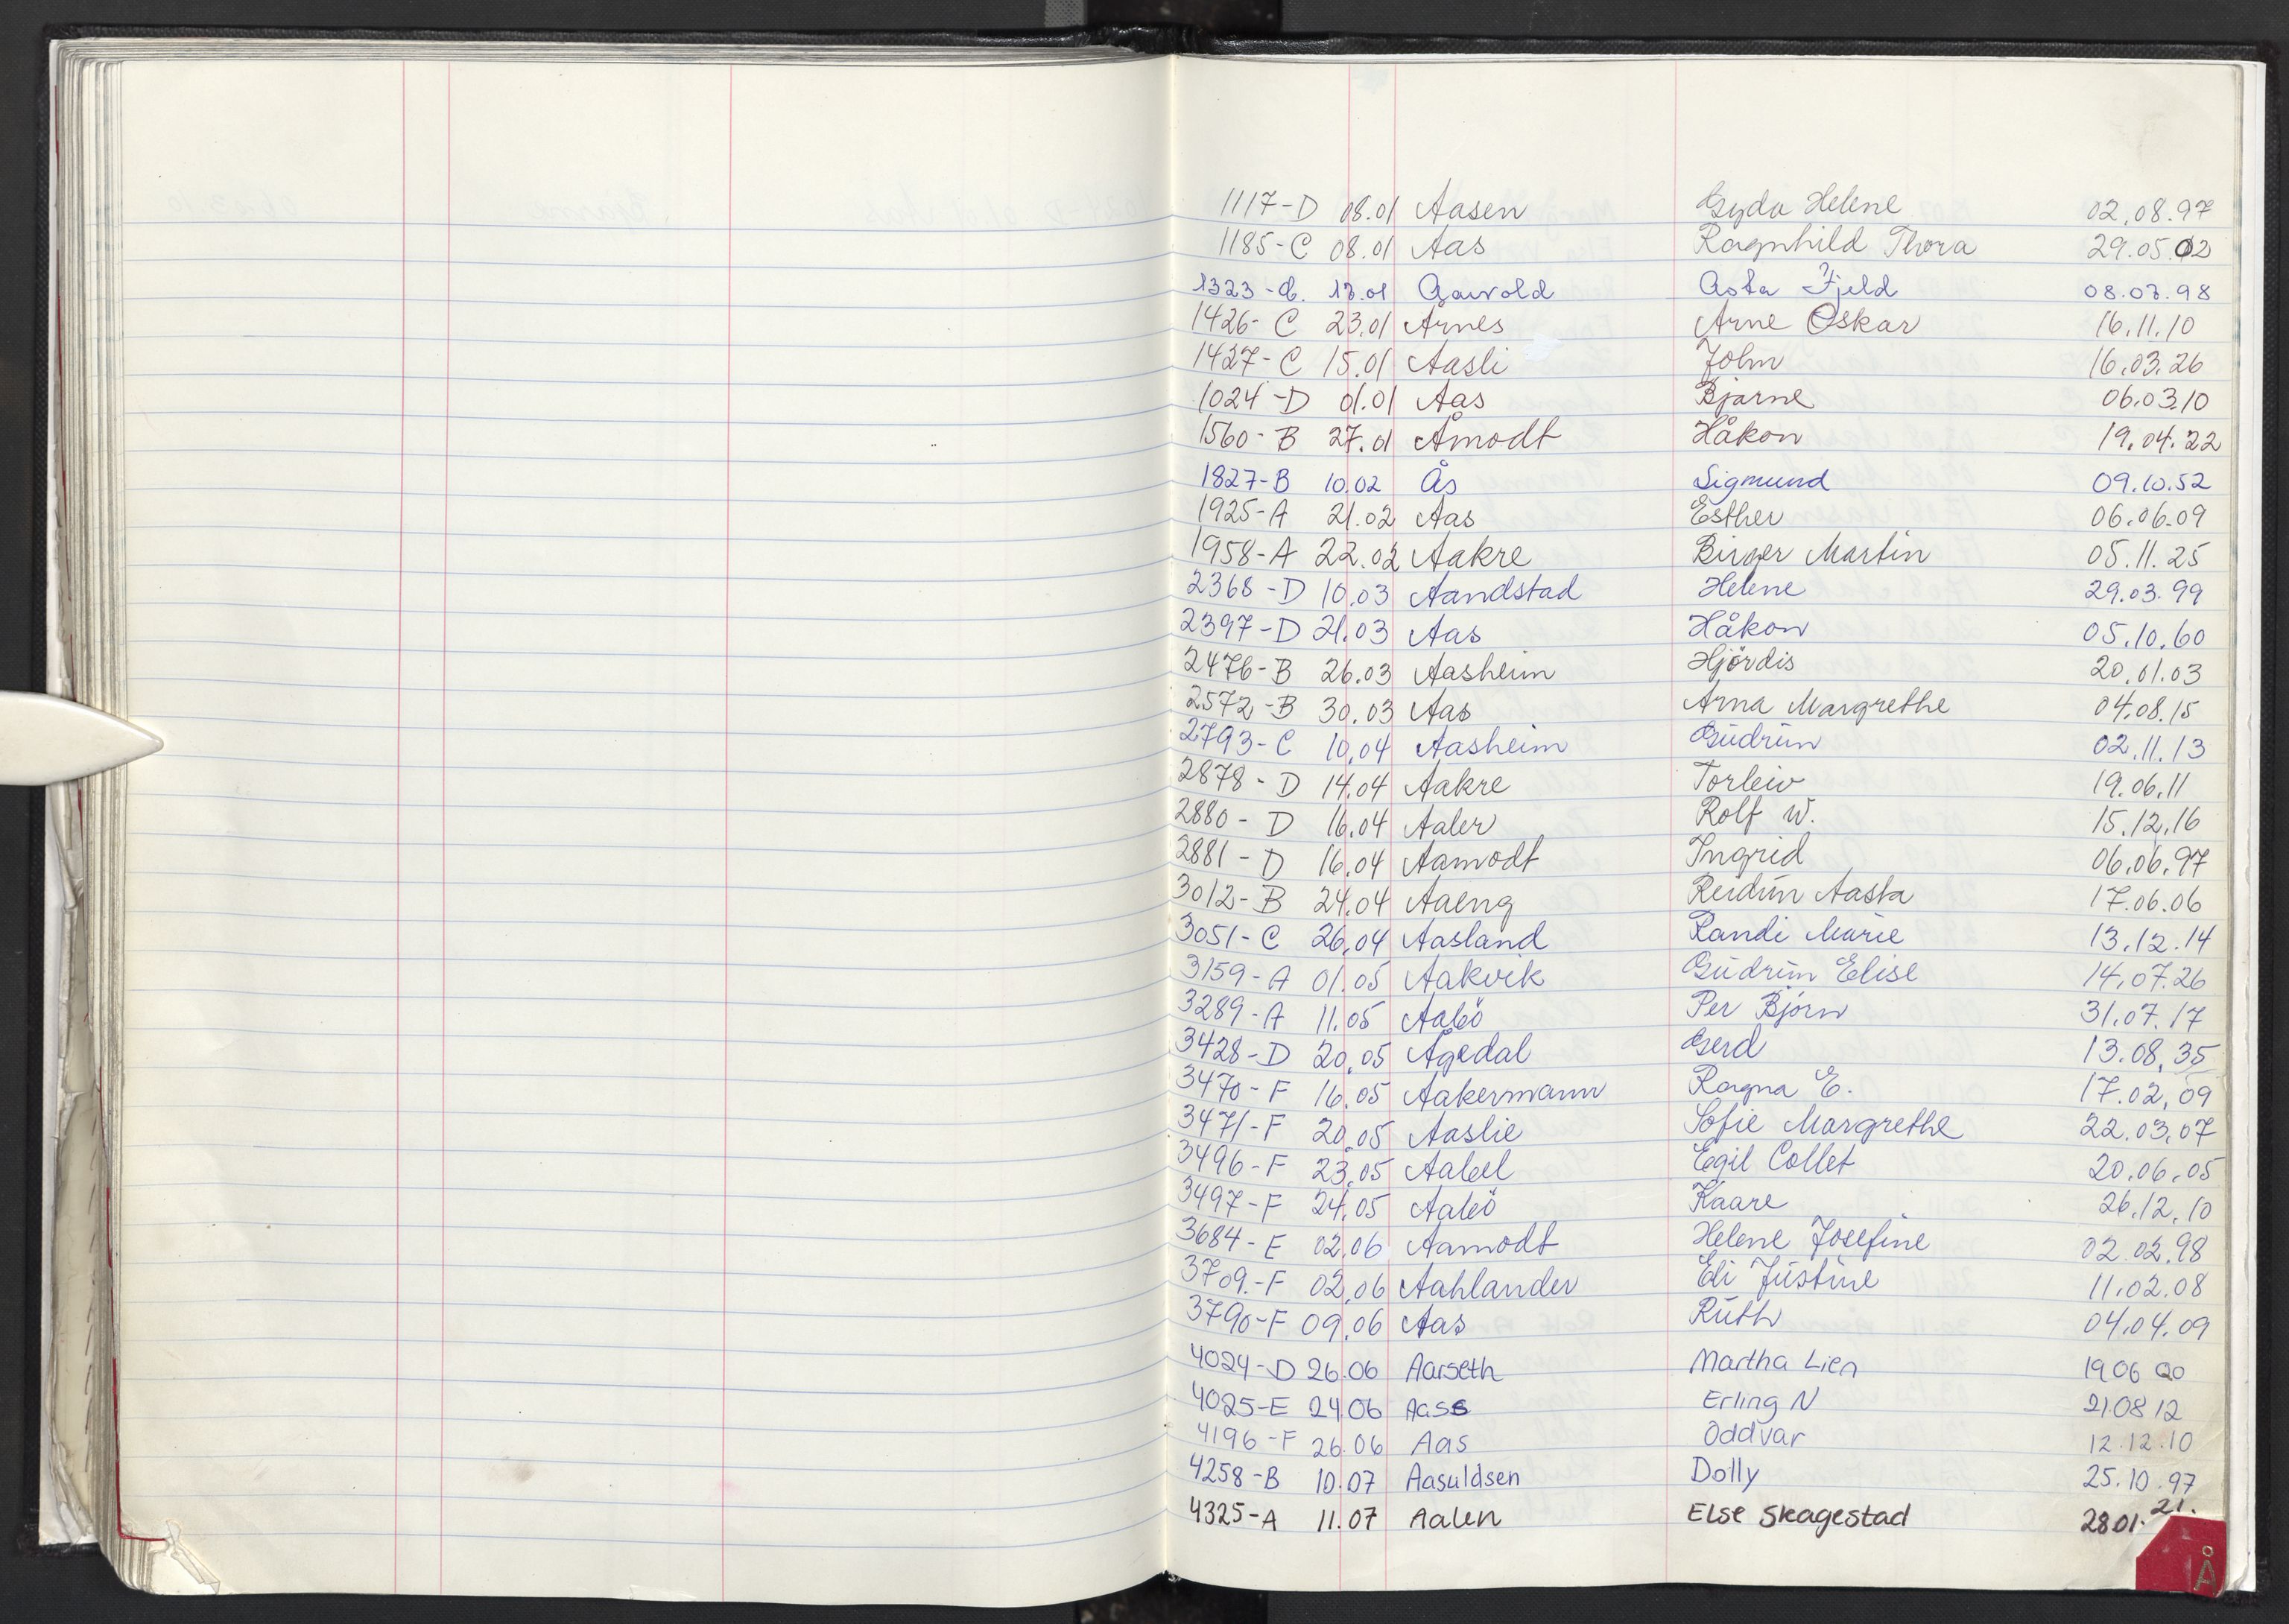 1117-D 08.01 Aasen Gyda Helene 02.08.97
1185-C 08.01 Aas Ragnhild Thora 29.05.02
1323-C. 13.01 Aavold Asta Fjeld 08.03.98
1426-C 23.01 Årnes Arne Oskar 16.11.10
1427-C 15.01 Aasli John 16.03.26
1024-D 01.01 Aas Bjarne 06.03.10
1560-B 27.01 Åmodt Håkon 19.04.22
1827-B 10.02 Ås Sigmund 09.10.52
1925-A 21.02 Aas Esther 06.06.09
1958-A 22.02 Aakre Birger Martin 05.11.25
2368-D 10.03 Aandstad Helene 29.03.99
2397-D 21.03 Aas Håkon 05.10.60
2476-B 26.03 Aasheim Hjördis 20.01.03
2572-B 30.03 Aas Arna Margrethe 04.08.15
2793-C 10.04 Aasheim Gudrun 02.11.13
2878-D 14.04 Aakre Torleiv 19.06.11
2880-D 16.04 Aaler Rolf W. 15.12.16
2881-D 16.04 Aamodt Ingrid 06.06.97
3012-B 24.04 Aaeng Reidun Aasta 17.06.06
3051-C 26.04 Aasland Randi Marie 13.12.14
3159-A 01.05 Aakvik Gudrun Elise 14.07.26
3289-A 11.05 Aabö Per Björn 31.07.17
3428-D 20.05 Ågedal Gerd 13.08.35
3470-F 16.05 Aakermann Ragna E. 17.02.09
3471-F 20.05 Aaslie Sofie Margrethe 22.03.07
3496-F 23.05 Aabel Egil Collet 20.06.05
3497-F 24.05 Aabö Kaare 26.12.10
3684-E 02.06 Aamodt Helene Josefine 02.02.98
3709.-F 02.06 Aahlander Eli Justine 11.02.08
3790-F 09.06 Aas Ruth 04.04.09
4024-D 26.06 Aarseth Martha Lien 19 06 00
4025-E 24.06 Aass Erling N 21.08 12
4196-F 26.06 Aas Oddvar 12.12.10
4258-B 10.07 Aasuldsen Dolly 25.10.97
4325-A 11.07 Aalen Else Skagestad 28 01. 21.
Å